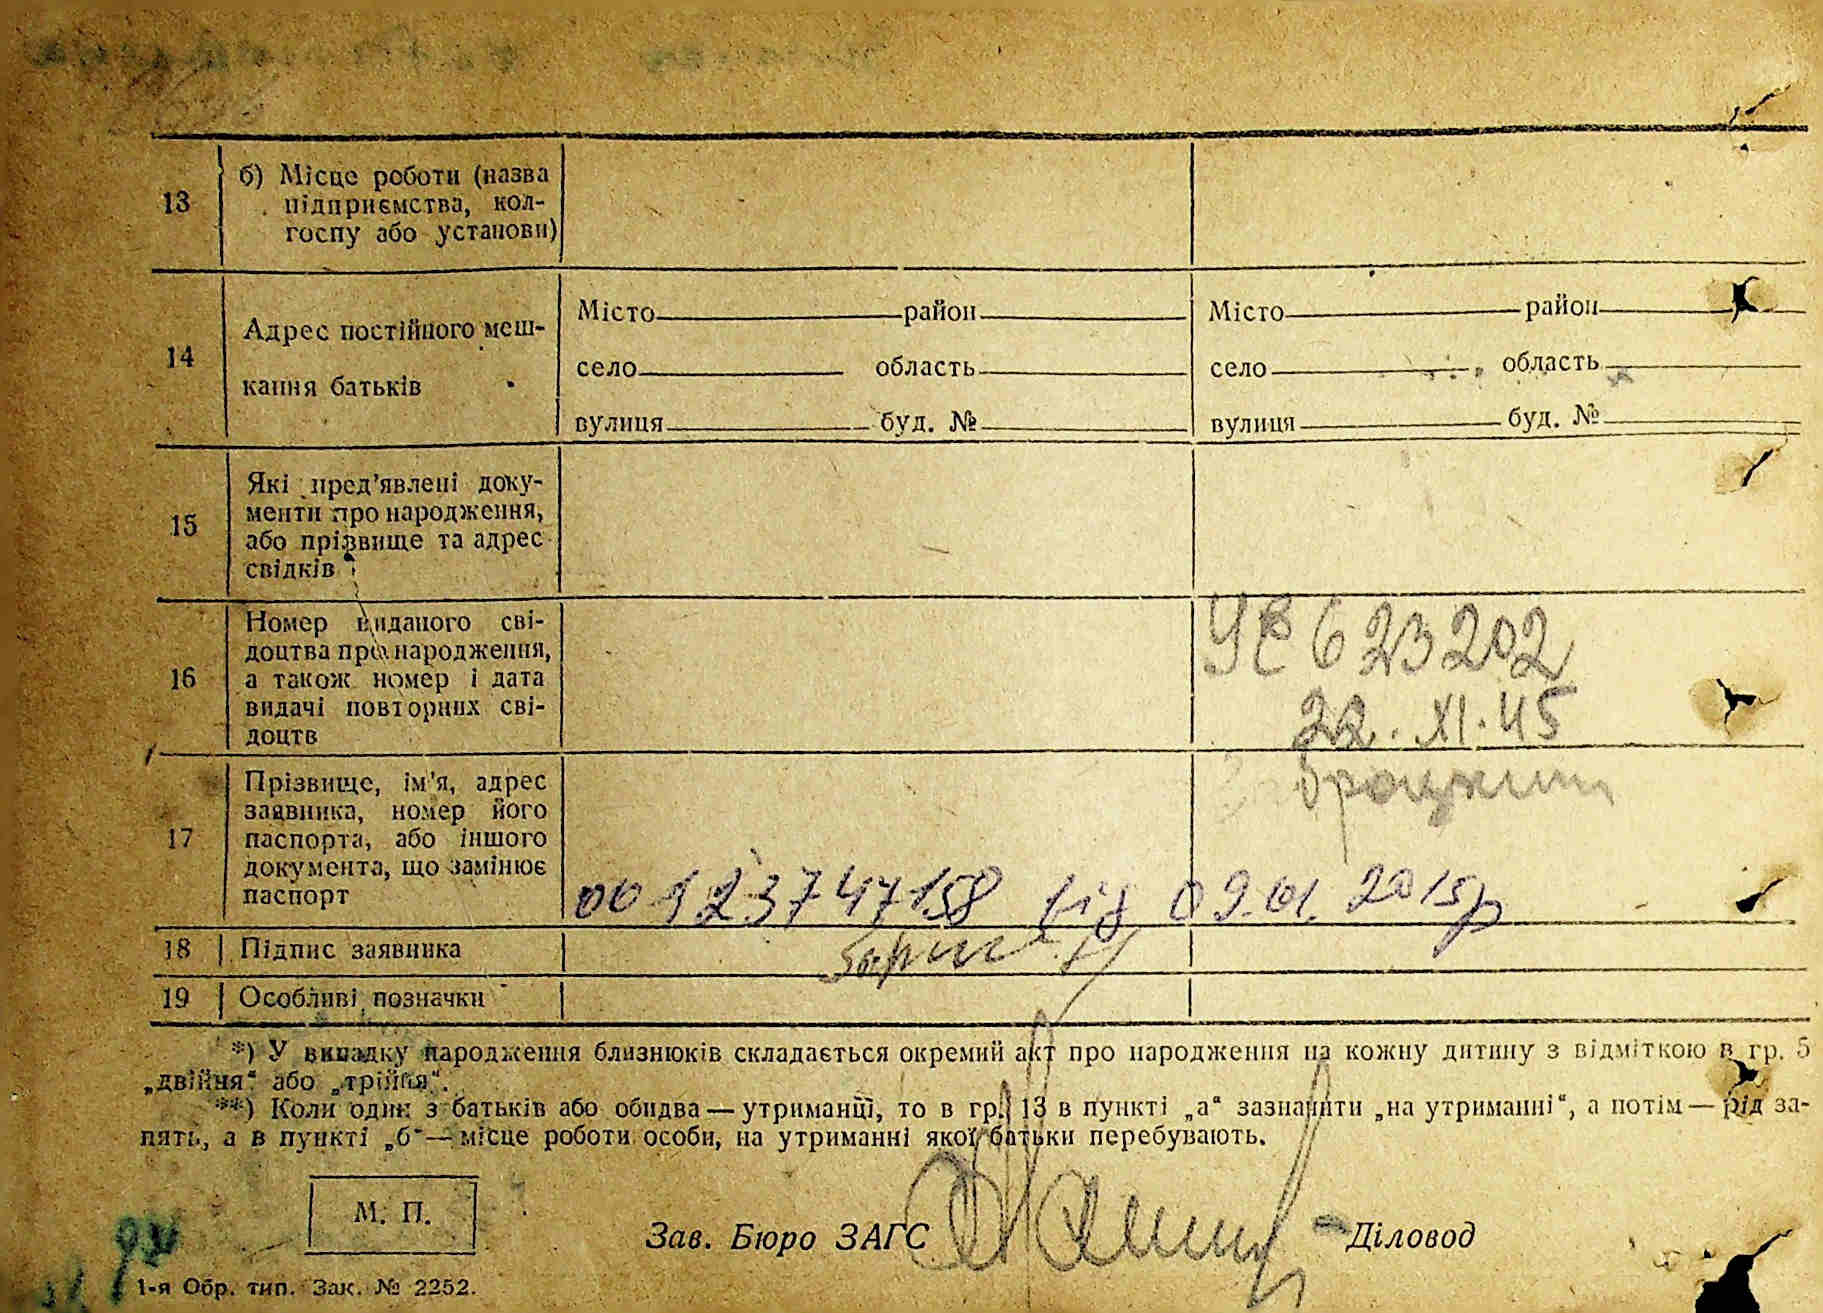 13
б) Місце роботи (назва
підприємства, кол-
госпу або установи)
14
Адрес постійного меш-
кання батьків
Місто район
село область
вулиця буд. №
Місто район
село область
вулиця буд. №
15
Які пред'явлені доку-
менти про народження,
або прізвище та адрес
свідків
16
Номер виданого сві-
доцтва про народження,
а також номер і дата
видачі повторних сві-
доцтв
УЄ 623202
22. XI. 45
17
Прізвище, ім'я, адрес
заявника, номер його
паспорта, або іншого
документа, що замінює
паспорт
00123747158 від 09.01.2015р
18 Підпис заявника
19 Особливі позначки
*) У випадку народження близнюків складається окремий акт про народження на кожну дитину з відміткою в гр. 5
„двійня" або „трійня".
**) Коли один з батьків або обидва — утриманці, то в гр. 13 в пункті „а" зазначити „на утриманні", а потім — рід за-
нять, а в пункті „б" — місце роботи особи, на утриманні якої батьки перебувають.
М. П.
Зав. Бюро ЗАГС Діловод
1-я Обр. тип. Зак. № 2252.